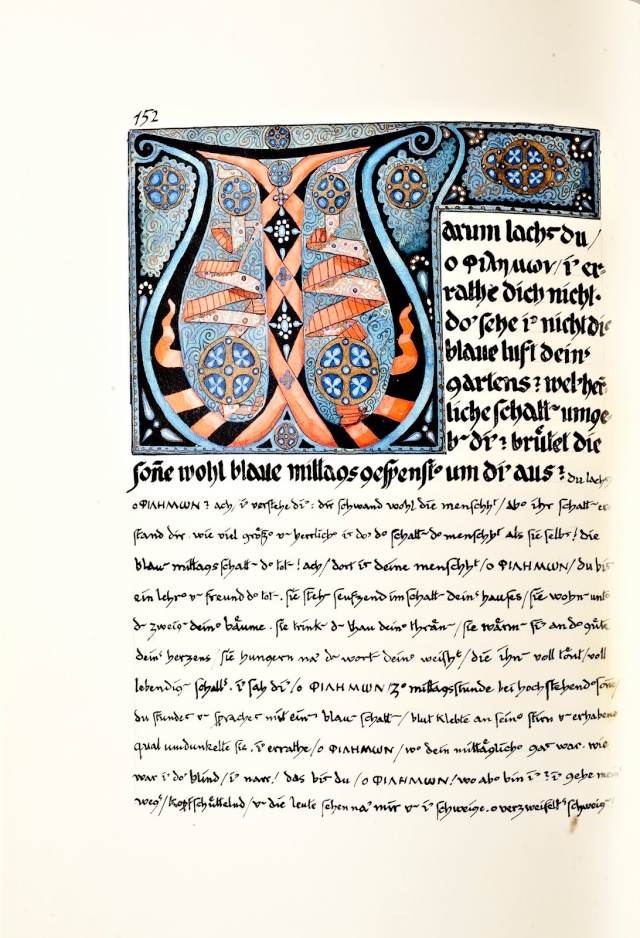 152
Warum lachst du /
o ΦΙΛΗΜΩΝ / i er-
rathe dich nicht.
do sehe i nicht die
blaue luft dein
gartens? welche herr-
liche schatt umge-
b di? brütet die
sonne wohl blaue mittagsgespenst um di aus? du lachs
o ΦΙΛΗΜΩΝ? ach / i verstehe di: dir schwand wohl die menschht / abo ihr schatt er
stand dir. wie viel größo u herrlicho is do do schatt do menschht als sie selbs! die
blau mittagsschatt do tot! ach / dort is deine menschht / o ΦΙΛΗΜΩΝ / du bis
ein lehro u freund do tot. sie steh seufzend im schatt dein hauses / sie wohn unt
d zweig deino bäume. sie trink d thau deino thrän / sie wärm si an do güte
dein herzens / sie hungern na d wort deino weisht / die ihn voll tönt / voll
lebendig schalls. i sah di / o ΦΙΛΗΜΩΝ / zo mittagsstunde bei hochstehendo sonne
du standes u spraches mit ein blau schatt / blut klebte an seino stirn u erhabene
qual umdunkelte sie. i errathe / o ΦΙΛΗΜΩΝ / wo dein mittäglicho gas war. wie
war i do blind / i narr! das bis du / o ΦΙΛΗΜΩΝ! wo abo bin i? i gehe mein
wegs / kopfschüttelnd / u die leute sehen na mir u i schweige. o verzweifelt schweig